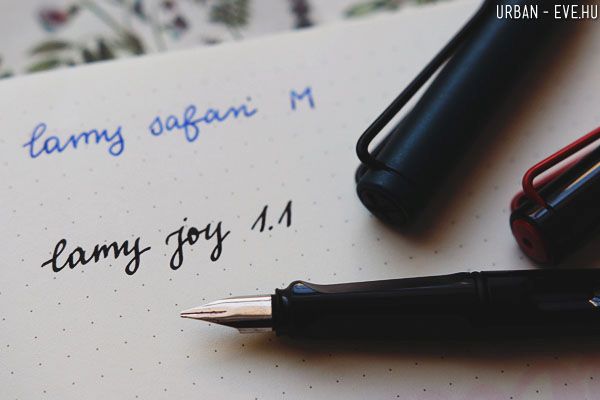 URBAN - EVE.HU
lamy safari M
lamy joy 1.1